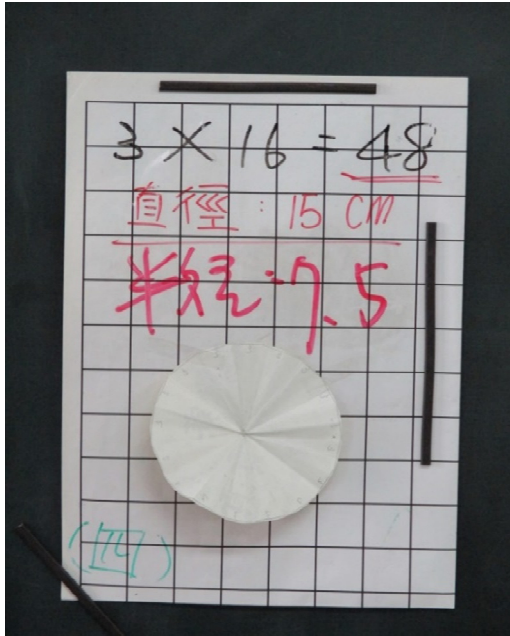 3 × 16 = 48
直徑：15 CM
半徑：7.5
(四)